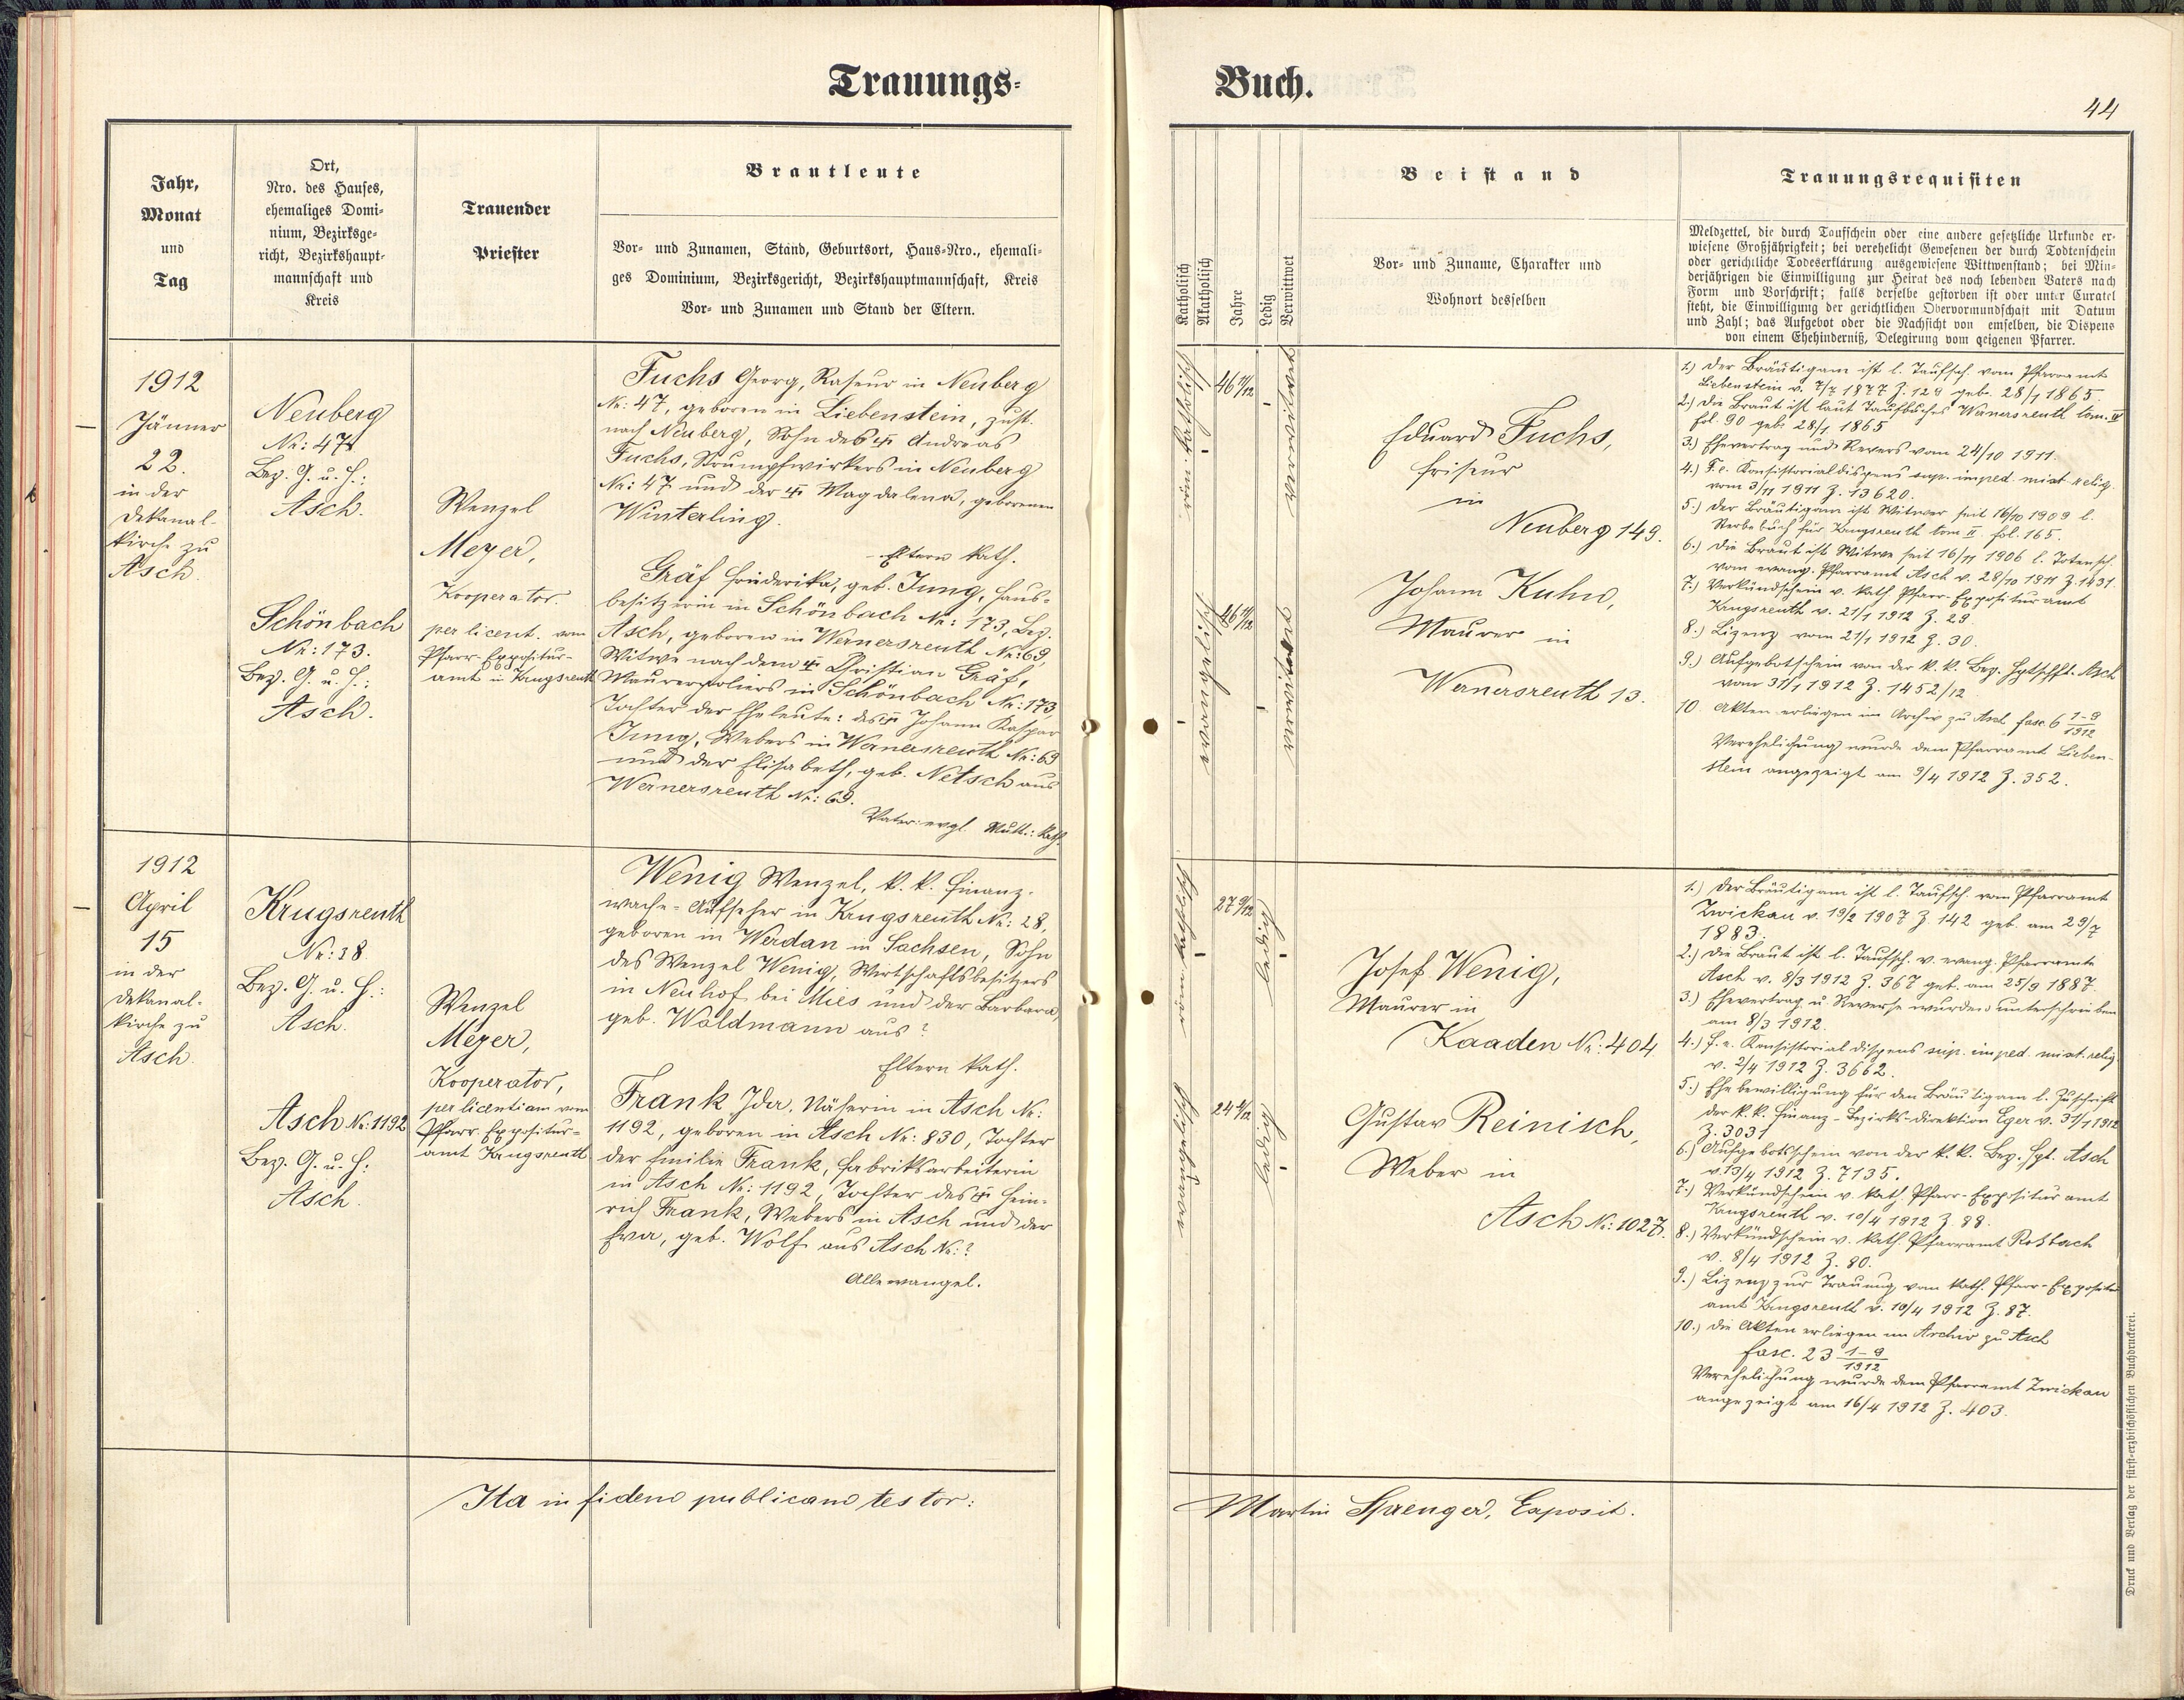 Trauungs-
Buch.
44
Jahr,
Monat
und
Tag
Ort,
Nro. des Hauses,
ehemaliges Domi-
nium, Bezirksge-
richt, Bezirkshaupt-
mannschaft und
Kreis
Trauender
Priester
Brautleute
Vor- und Zunamen, Stand, Geburtsort, Haus-Nro., ehemali-
ges Dominium, Bezirksgericht, Bezirkshauptmannschaft, Kreis
Vor- und Zunamen und Stand der Eltern.
Katholisch
Akatholisch
Jahre
Ledig
Verwittwet
Beistand
Vor- und Zuname, Charakter und
Wohnort desselben
Trauungsrequisiten
Meldzettel, die durch Taufschein oder eine andere gesetzliche Urkunde er-
wiesene Großjährigkeit; bei verehelicht Gewesenen der durch Todtenschein
oder gerichtliche Todeserklärung ausgewiesene Wittwenstand; bei Min-
derjährigen die Einwilligung zur Heirat des noch lebenden Vaters nach
Form und Vorschrift; falls derselbe gestorben ist oder unter Curatel
steht, die Einwilligung der gerichtlichen Obervormundschaft mit Datum
und Zahl; das Aufgebot oder die Nachsicht von emselben, die Dispens
von einem Ehehinderniß, Delegirung vom geigenen Pfarrer.
1912
Jänner
22.
in der
Dekanal-
kirche zu
Asch.
Neuberg
Nr: 47
Bez. G. u. H.:
Asch.
Schönbach
Nr: 173.
Bez. G. u. H.:
Asch.
Wenzel
Meyer,
Kooperator.
per licent. vom
Pfarr-Expositur-
amt in Krugsreuth
Fuchs Georg, Raseur in Neuberg
Nr: 47, geboren in Liebenstein, zust.
nach Neuberg, Sohn des † Andreas
Fuchs, Strumpfwirkers in Neuberg
Nr: 47 und der † Magdalena, geborenen
Winterling.
Eltern kath.
Gräf Friederika, geb. Jung, Haus-
besitzerin in Schönbach Nr: 173, Bez.
Asch, geboren in Wernersreuth Nr: 69,
Witwe nach dem † Christian Gräf,
Maurerpoliers in Schönbach Nr: 173,
Tochter der Eheleute: des † Johann Kaspar
Jung, Webers in Wernersreuth Nr: 69
und der Elisabeth, geb. Netsch aus
Wernersreuth Nr: 69.
Vater: evgl. Mutt.: kath.
röm. katholisch
46 11/12
verwitwet
evangelisch
46 11/12
verwitwet
Eduard Fuchs,
Friseur
in
Neuberg 149.
Johann Kuhn,
Maurer in
Wernersreuth 13.
1.) Der Bräutigam ist l. Taufsch. vom Pfarramte
Liebenstein v. 7/7 1877 Z. 129 geb. 28/1 1865.
2.) Die Braut ist laut Taufbuches Wernersreuth tom. IV
fol. 90 geb. 28/1 1865
3.) Ehevertrag und Revers vom 24/10 1911.
4.) F.e. Konsistorialdispens sup. imped. mixt. relig.
vom 3/11 1911 Z. 13620.
5.) Der Bräutigam ist Witwer seit 16/10 1909 l.
Sterbebuch für Krugsreuth tom II fol. 165.
6.) Die Braut ist Witwe seit 16/11 1906 l. Totensch.
vom evang. Pfarramt Asch v. 28/10 1911 Z. 1431.
7.) Verkündschein v. kath Pfarr-Expositur amt
Krugsreuth v. 21/1 1912 Z. 29.
8.) Lizenz vom 21/1 1912 Z. 30.
9.) Aufgebotschein von der k. k. Bez. Hptschft. Asch
vom 31/1 1912 Z. 1452/12
10. Akten erliegen im Archiv zu Asch fasc. 6 1-9/1912
Verehelichung wurde dem Pfarramt Lieben-
stein angezeigt am 9/4 1912 Z. 352.
1912
April
15
in der
Dekanal-
kirche zu
Asch.
Krugsreuth
Nr: 28.
Bez. G. u. H.:
Asch.
Asch Nr: 1192
Bez. G. u. H:
Asch.
Wenzel
Meyer,
Kooperator,
per licentiam vom
Pfarr. Expositur-
amt Krugsreuth
Wenig Wenzel, k. k. Finanz-
wache-Aufseher in Krugsreuth Nr: 28,
geboren in Werdau in Sachsen, Sohn
des Wenzel Wenig, Wirtschaftsbesitzers
in Neuhof bei Mies und der Barbara,
geb. Waldmann aus?
Eltern kath.
Frank Ida, Näherin in Asch Nr:
1192, geboren in Asch Nr: 830, Tochter
der Emilie Frank, Fabriksarbeiterin
in Asch Nr: 1192, Tochter des † Hein-
rich Frank, Webers in Asch und der
Eva, geb. Wolf aus Asch Nr:?
Alle evangel.
röm. katholisch
27 9/12
ledig
evangelisch
24
ledig
Josef Wenig,
Maurer in
Kaaden Nr: 404
Gustav Reinisch,
Weber in
Asch Nr: 1027.
1.) Der Bräutigam ist l. Taufsch. vom Pfarramt
Zwickau v. 19/2 1907 Z. 142 geb. am 29/7
1883.
2.) Die Braut ist l. Taufsch. v. evang. Pfarramte
Asch v. 8/3 1912 Z. 367 geb. am 25/9 1887.
3.) Ehevertrag u. Reverse wurden unterschrieben
am 8/3 1912.
4.) F. e. Konsistorialdispens sup. imped. mixt. relig.
v. 2/4 1912 Z. 3662.
5.) Ehebewilligung für den Bräutigam l. Zuschrift
der k. k. Finanz-Bezirks-Direktion Eger v. 31/1 1912
Z. 3031
6.) Aufgebotsschein von der k. k. Bez. Hpt. Asch
v. 13/4 1912 Z. 7135.
7.) Verkündschein v. kath. Pfarr-Expositur amt
Krugsreuth v. 10/4 1912 Z. 88.
8.) Verkündschein v. kath. Pfarramt Roßbach
v. 8/4 1912 Z. 80.
9.) Lizenz zur Trauung vom kath. Pfarr-Expositur
amt Krugsreuth v. 10/4 1912 Z. 87.
10.) Die Akten erliegen im Archiv zu Asch
fasc. 23 1-9/1912
Verehelichung wurde dem Pfarramt Zwickau
angezeigt am 16/4 1912 Z. 403.
Ita in fidem publicam testor:
Martin Sprenger, Exposit.
Druck und Verlag der fürst-erzbischöflichen Buchdruckerei.